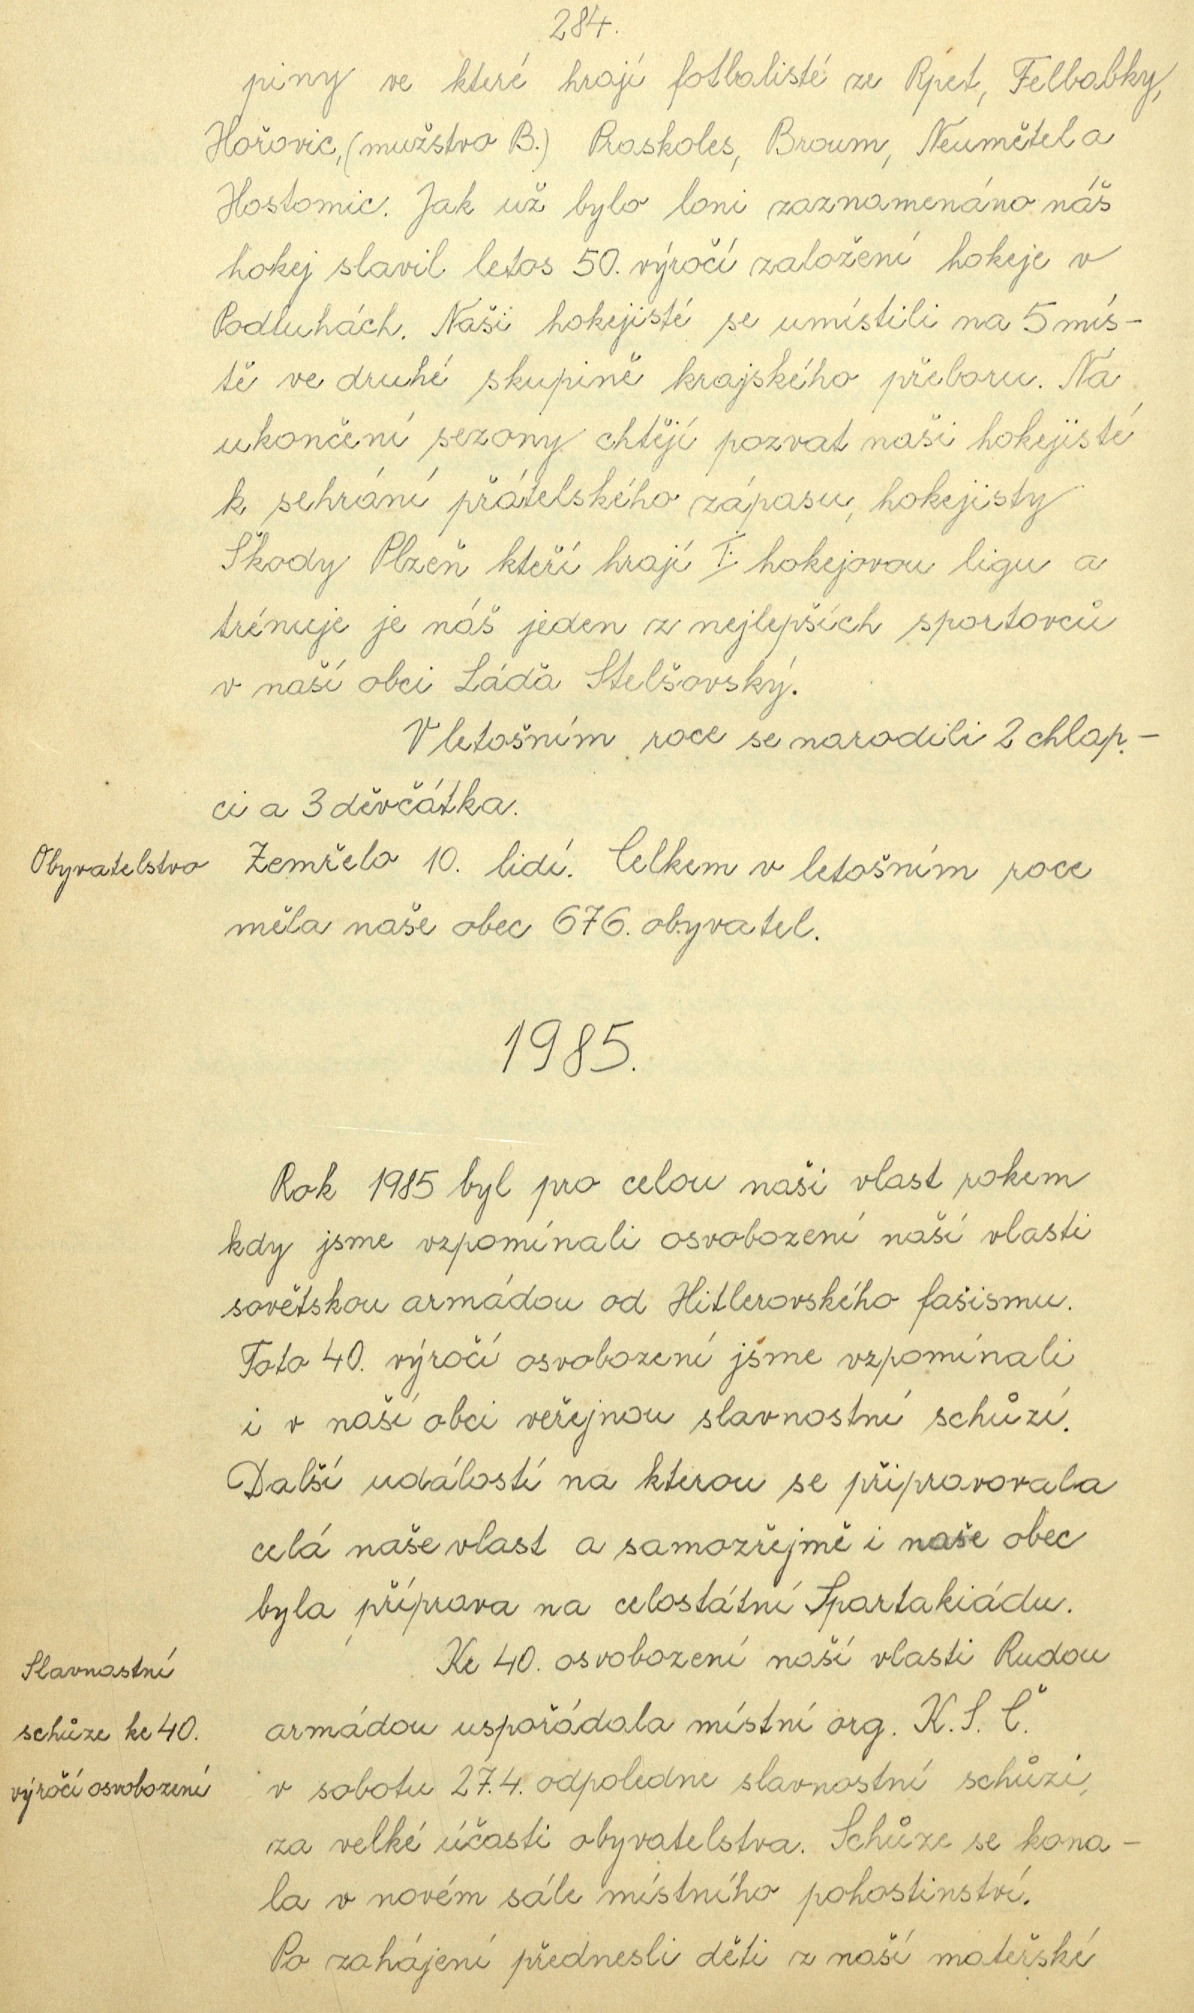 284.
piny ve které hrají fotbalisté ze Rpet, Felbabky,
Hořovic, (mužstvo B.) Praskoles, Broum, Neumětel a
Hostomic. Jak už bylo loni zaznamenáno náš
hokej slavil letos 50. výročí založení hokeje v
Podluhách. Naši hokejisté se umístili na 5 mís-
tě ve druhé skupině krajského přeboru. Na
ukončení sezony chtějí pozvat naši hokejisté
k sehrání přátelského zápasu, hokejisty
Škody Plzeň kteří hrají I. hokejovou ligu a
trénuje je náš jeden z nejlepších sportovců
v naší obci Láďa Stelšovský.
V letošním roce se narodili 2 chlap-
ci a 3 děvčátka.
Obyvatelstvo Zemřelo 10. lidí. Celkem v letošním roce
měla naše obec 676. obyvatel.
1985.
Rok 1985 byl pro celou naši vlast rokem
kdy jsme vzpomínali osvobození naší vlasti
sovětskou armádou od Hitlerovského fašismu.
Toto 40. výročí osvobození jsme vzpomínali
i v naší obci veřejnou slavnostní schůzí.
Další událostí na kterou se připravovala
celá naše vlast a samozřejmě i naše obec
byla příprava na celostátní Spartakiádu.
Slavnostní Ke 40. osvobození naší vlasti Rudou
schůze ke 40. armádou uspořádala místní org. K.S.Č.
výročí osvobození v sobotu 27.4. odpoledne slavnostní schůzi,
za velké účasti obyvatelstva. Schůze se kona-
la v novém sále místního pohostinství.
Po zahájení přednesli děti z naší mateřské